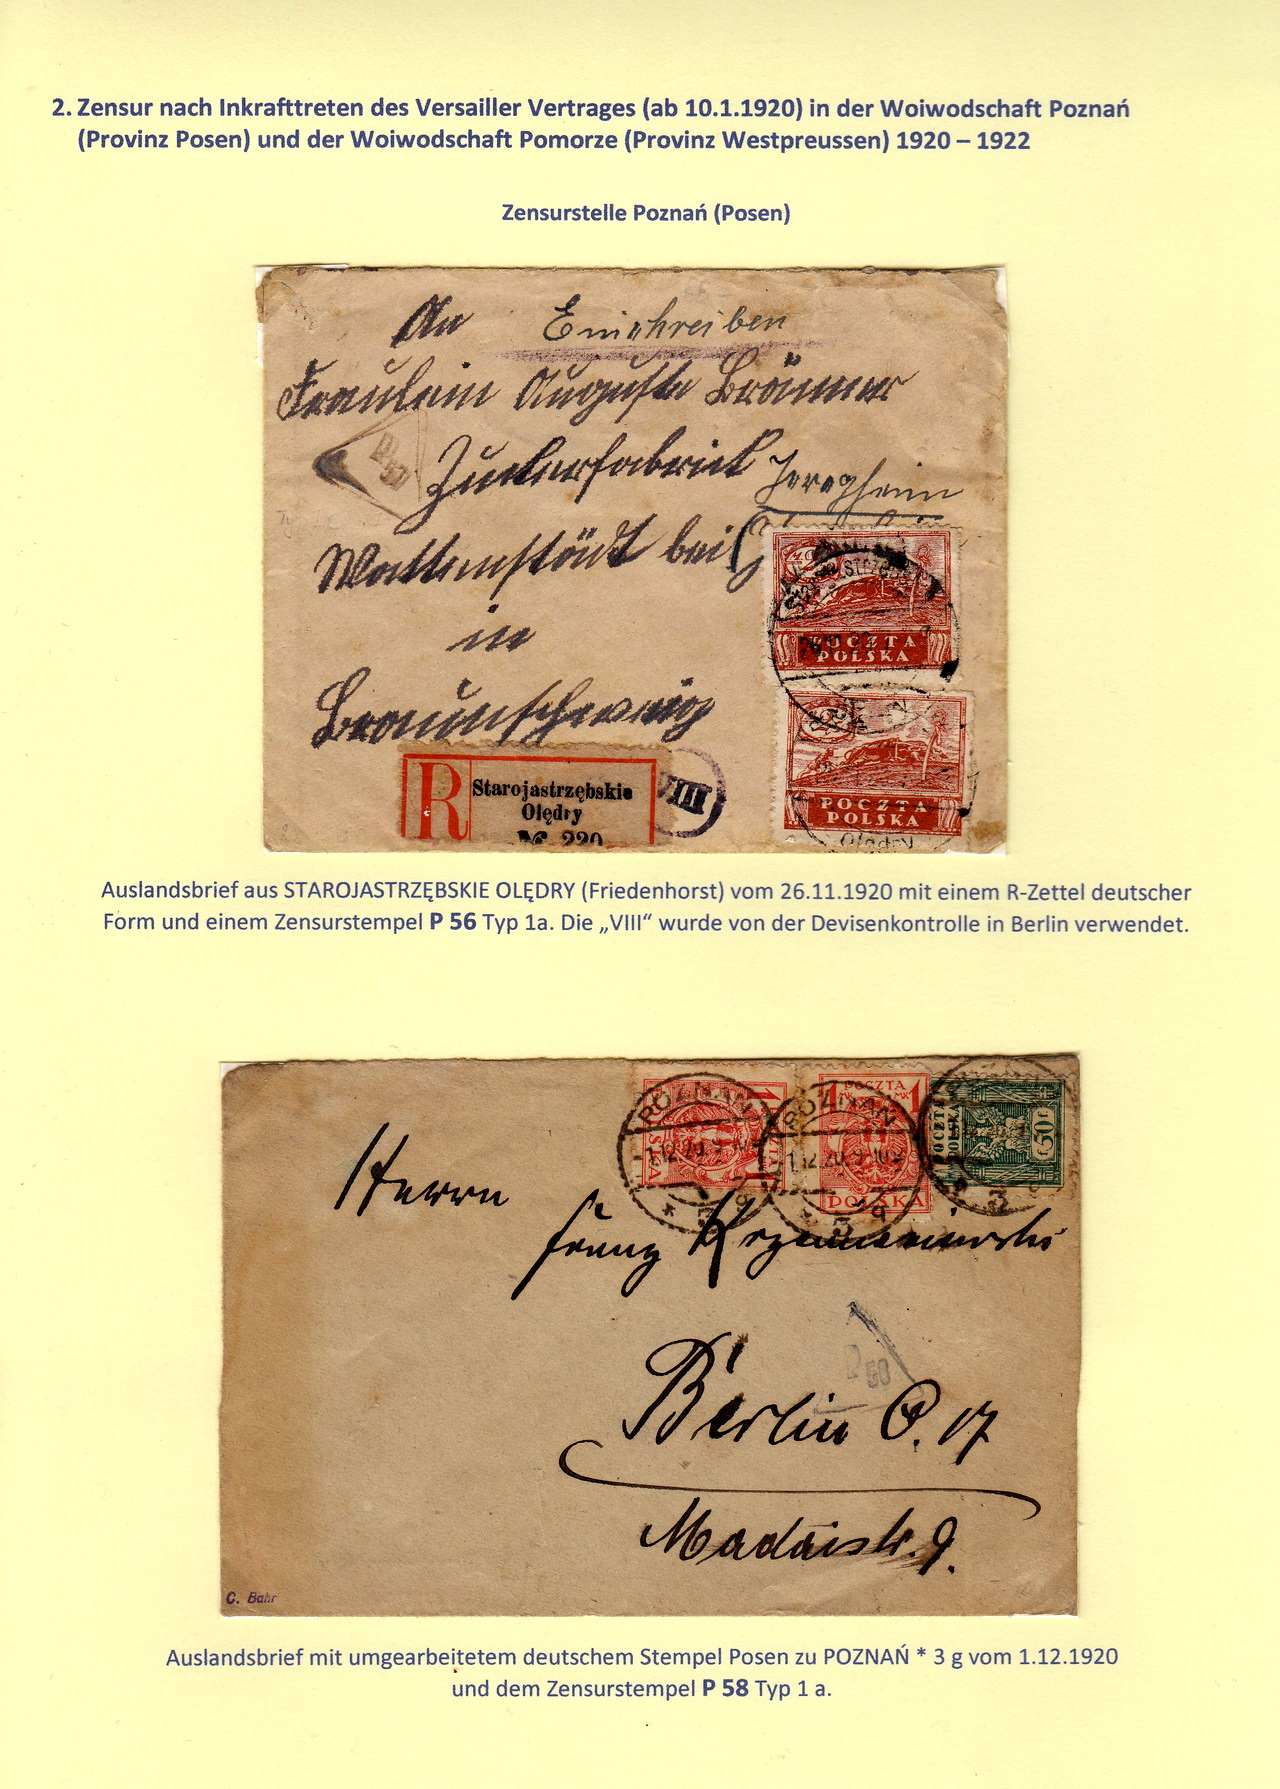 2. Zensur nach Inkrafttreten des Versailler Vertrages (ab 10.1.1920) in der Woiwodschaft Poznań
(Provinz Posen) und der Woiwodschaft Pomorze (Provinz Westpreussen) 1920 – 1922
Zensurstelle Poznań (Posen)
An Einschreiben
Fräulein Auguste Brämer
Zuckerfabrick
Wattenstädt bei
in
Braunschweig
POCZTA
POLSKA
POCZTA
POLSKA
Olędry
R
Starojastrzębskie
Olędry
№ 220
VIII
Auslandsbrief aus STAROJASTRZĘBSKIE OLĘDRY (Friedenhorst) vom 26.11.1920 mit einem R-Zettel deutscher
Form und einem Zensurstempel P 56 Typ 1a. Die „VIII“ wurde von der Devisenkontrolle in Berlin verwendet.
POZNAŃ
1.12.20
3 g
POZNAŃ
1.12.20
3 g
1 POCZTA 1
MK MK
POLSKA
POCZTA
POLSKA
50 f
3
Herrn
Franz
Berlin O. 17
Madaistr. 9.
P 58
C. Bahr
Auslandsbrief mit umgearbeitetem deutschem Stempel Posen zu POZNAŃ * 3 g vom 1.12.1920
und dem Zensurstempel P 58 Typ 1 a.